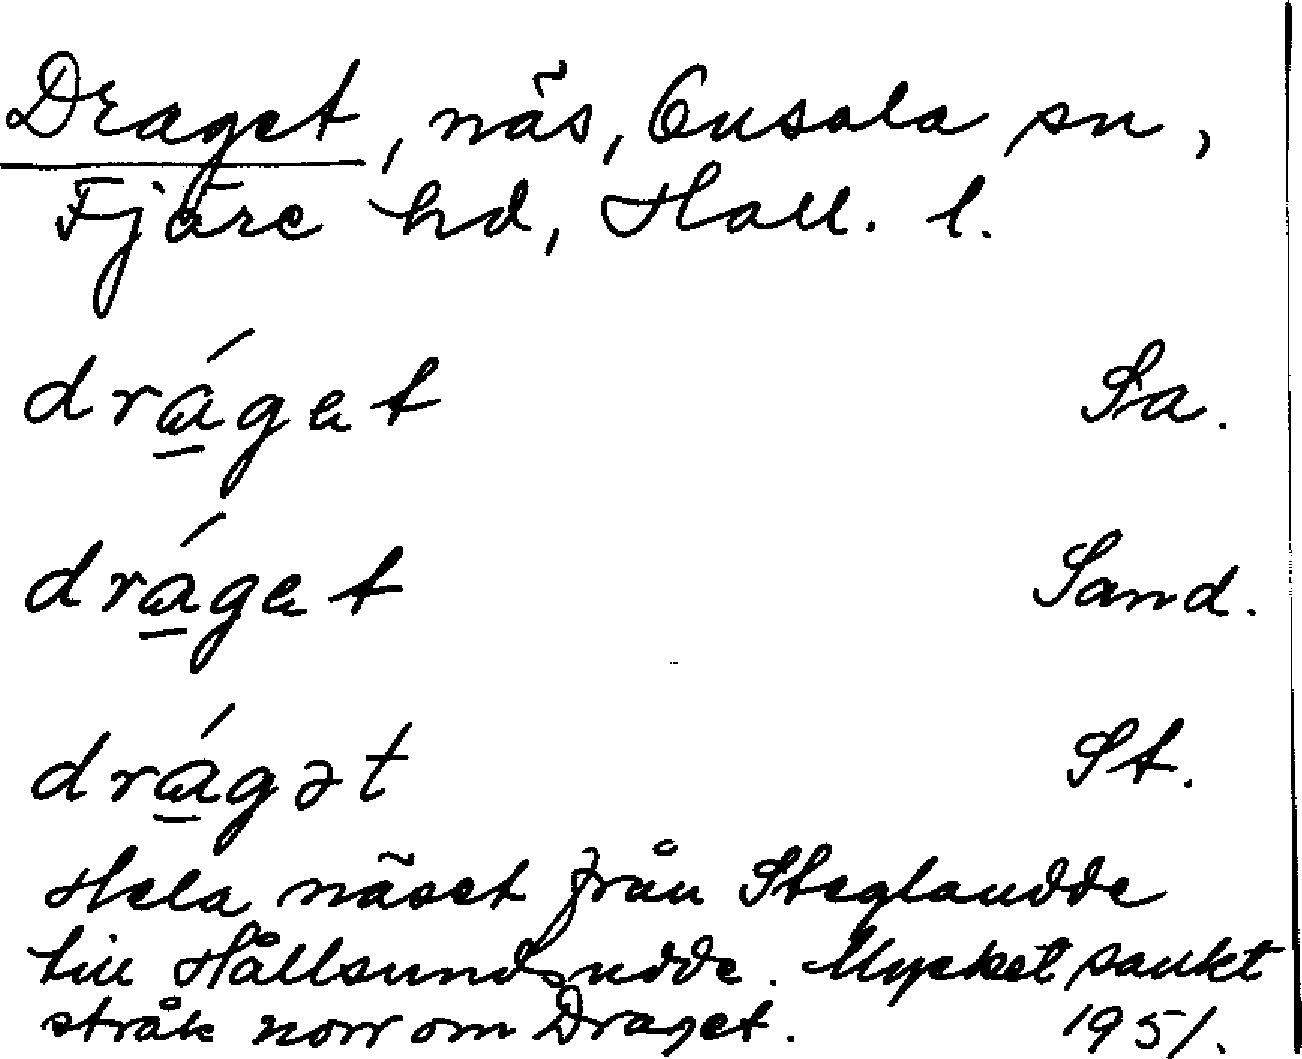 Draget, näs, Onsala sn,
Fjäre hd, Hall. l.
drá̱gat Sa.
drá̱gat Sand.
drá̱gət St.
Hela näset från Steglaudde
till Hållsundsudde. Mycket sankt
stråk norr om Draget. 1951.